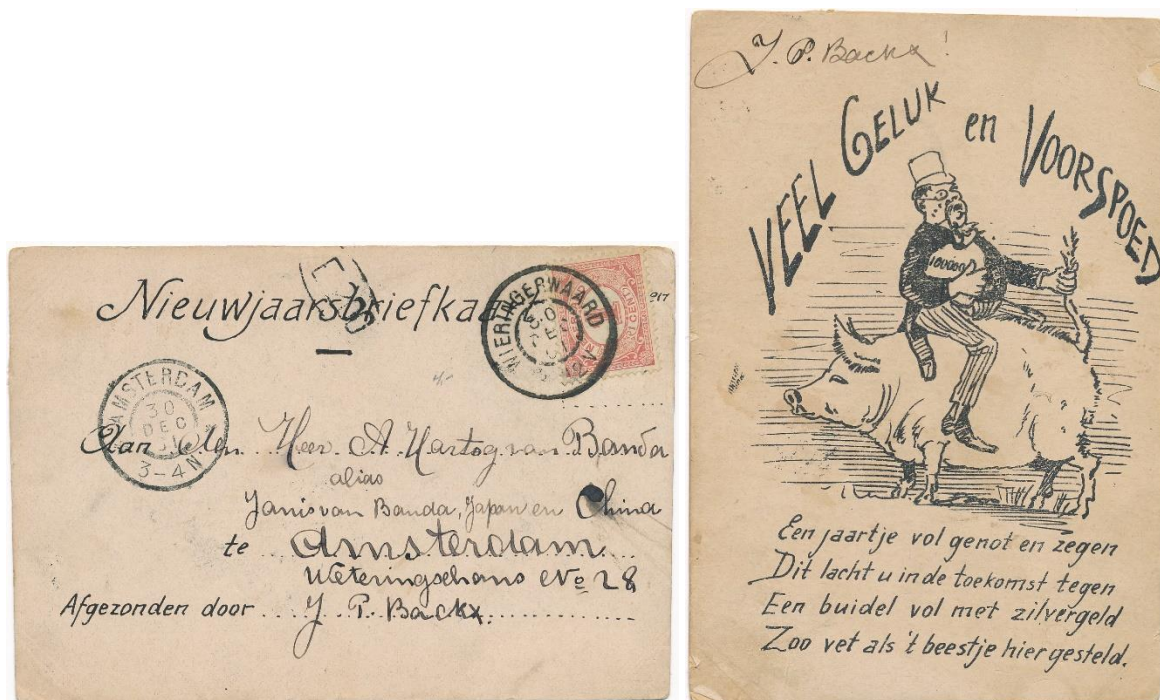 Nieuwjaarsbriefkaart
WIERINGERWAARD
217
AMSTERDAM
30
DEC
01
3-4N
Aan den Heer A. Hartog van Banda
alias
Janis van Banda, Japan en China
te Amsterdam
Weteringschans No 28
Afgezonden door J. P. Backx.
J. P. Backx!
VEEL GELUK en VOORSPOED
100000
Een jaartje vol genot en zegen
Dit lacht u in de toekomst tegen
Een buidel vol met zilvergeld
Zoo vet als 't beestje hier gesteld.